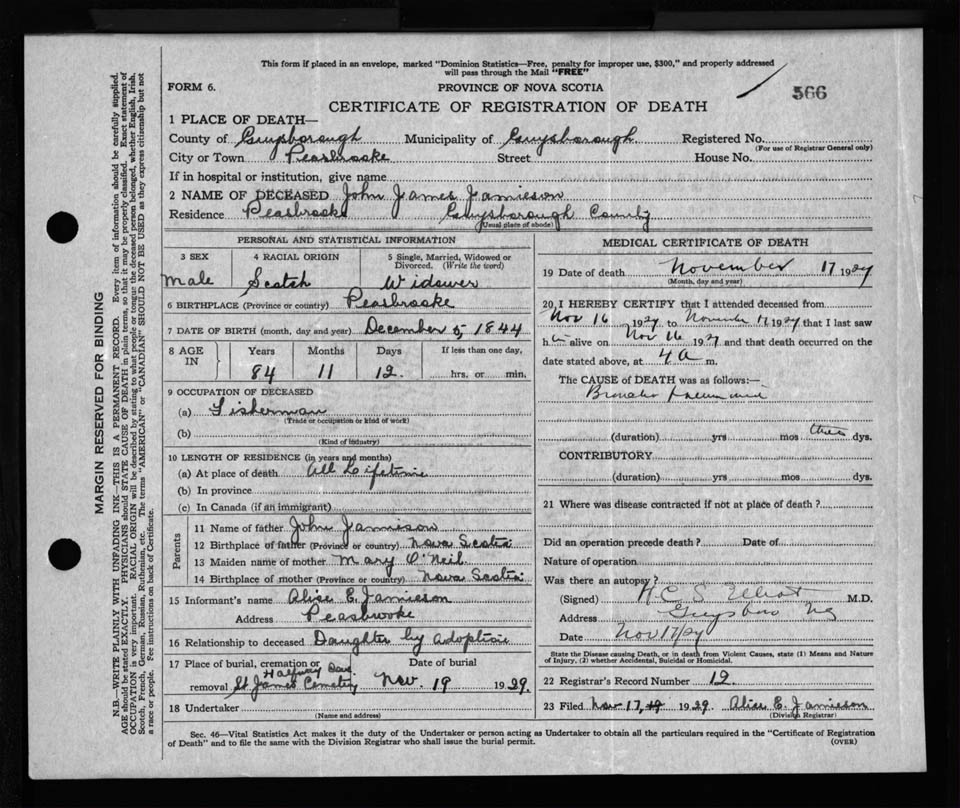 This form if placed in an envelope, marked "Dominion Statistics—Free, penalty for improper use, $300," and properly addressed
will pass through the Mail "FREE"
FORM 6.
PROVINCE OF NOVA SCOTIA
566
CERTIFICATE OF REGISTRATION OF DEATH
1 PLACE OF DEATH—
County of Guysborough Municipality of Guysborough Registered No.
(For use of Registrar General only)
City or Town Peasbrooke Street House No.
If in hospital or institution, give name
2 NAME OF DECEASED John James Jamieson
Residence Peasbrooke Guysborough County
(Usual place of abode)
PERSONAL AND STATISTICAL INFORMATION
3 SEX 4 RACIAL ORIGIN 5 Single, Married, Widowed or
Divorced. (Write the word)
Male Scotch Widower
6 BIRTHPLACE (Province or country) Peasbrooke
7 DATE OF BIRTH (month, day and year) December 5, 1844
8 AGE IN Years Months Days If less than one day,
84 11 12. hrs. or min.
9 OCCUPATION OF DECEASED
(a) Fisherman
(Trade or occupation or kind of work)
(b)
(Kind of industry)
10 LENGTH OF RESIDENCE (in years and months)
(a) At place of death All Lifetime
(b) In province
(c) In Canada (if an immigrant)
Parents
11 Name of father John Jamieson
12 Birthplace of father (Province or country) Nova Scotia
13 Maiden name of mother Mary O'Neil
14 Birthplace of mother (Province or country) Nova Scotia
15 Informant's name Alice E. Jamieson
Address Peasbrooke
16 Relationship to deceased Daughter by adoption
17 Place of burial, cremation or Date of burial
Halfway Cove
removal St James Cemetery Nov. 19 1929.
18 Undertaker
(Name and address)
MEDICAL CERTIFICATE OF DEATH
19 Date of death November 17 1929
(Month, day and year)
20 I HEREBY CERTIFY that I attended deceased from
Nov 16 1929 to November 17 1929 that I last saw
him alive on Nov 16 1929 and that death occurred on the
date stated above, at 4 a m.
The CAUSE of DEATH was as follows:—
Broncho pneumonia
(duration) yrs mos three dys.
CONTRIBUTORY
(duration) yrs mos dys.
21 Where was disease contracted if not at place of death?
Did an operation precede death? Date of
Nature of operation
Was there an autopsy?
(Signed) Elliot M.D.
Address Guysboro N.S.
Date Nov 17/29
State the Disease causing Death, or in death from Violent Causes, state (1) Means and Nature
of Injury, (2) whether Accidental, Suicidal or Homicidal.
22 Registrar's Record Number 12.
23 Filed Nov 17, 19 1929. Alice E. Jamieson
(Division Registrar)
Sec. 46—Vital Statistics Act makes it the duty of the Undertaker or person acting as Undertaker to obtain all the particulars required in the "Certificate of Registration
of Death" and to file the same with the Division Registrar who shall issue the burial permit. (OVER)
MARGIN RESERVED FOR BINDING
N.B.—WRITE PLAINLY WITH UNFADING INK—THIS IS A PERMANENT RECORD. Every item of information should be carefully supplied.
AGE should be stated EXACTLY. PHYSICIANS should STATE CAUSE OF DEATH in plain terms, so that it may be properly classified. Exact statement of
OCCUPATION is very important. RACIAL ORIGIN will be described by stating to what people or tongue the deceased person belonged, whether English, Irish,
Scotch, French, German, Russian, Ruthenian, etc. The terms "AMERICAN" or "CANADIAN" SHOULD NOT BE USED as they express citizenship but not
a race or people. Fee instructions on back of Certificate.